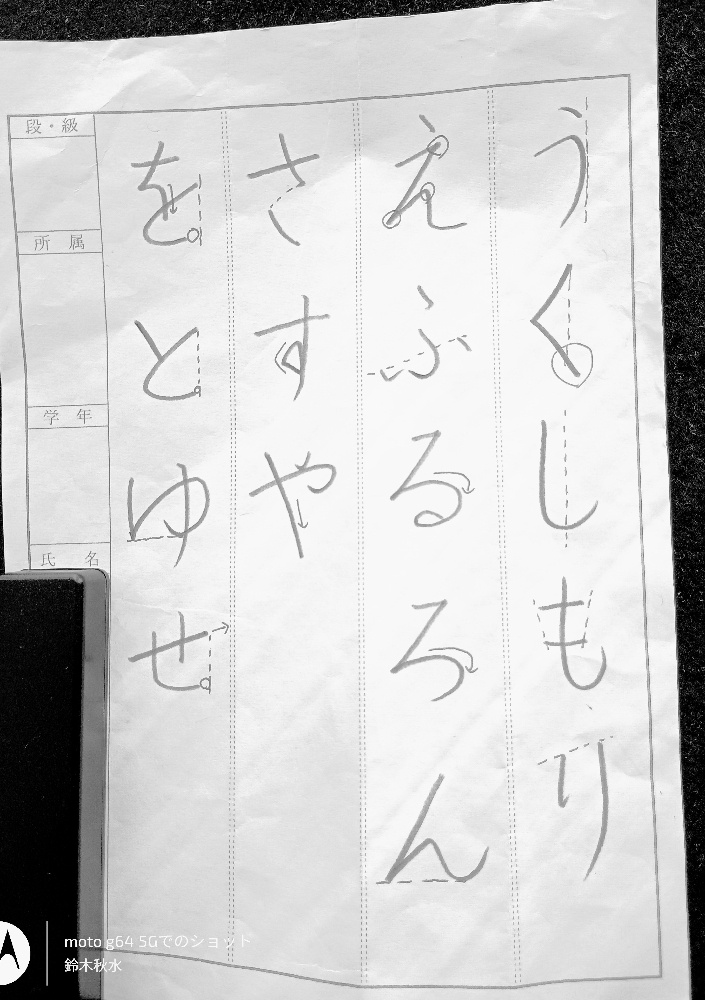 うくしもり
えふるろん
さすや
をとゆせ
段・級
所属
学年
氏名
moto g64 5Gでのショット
鈴木秋水